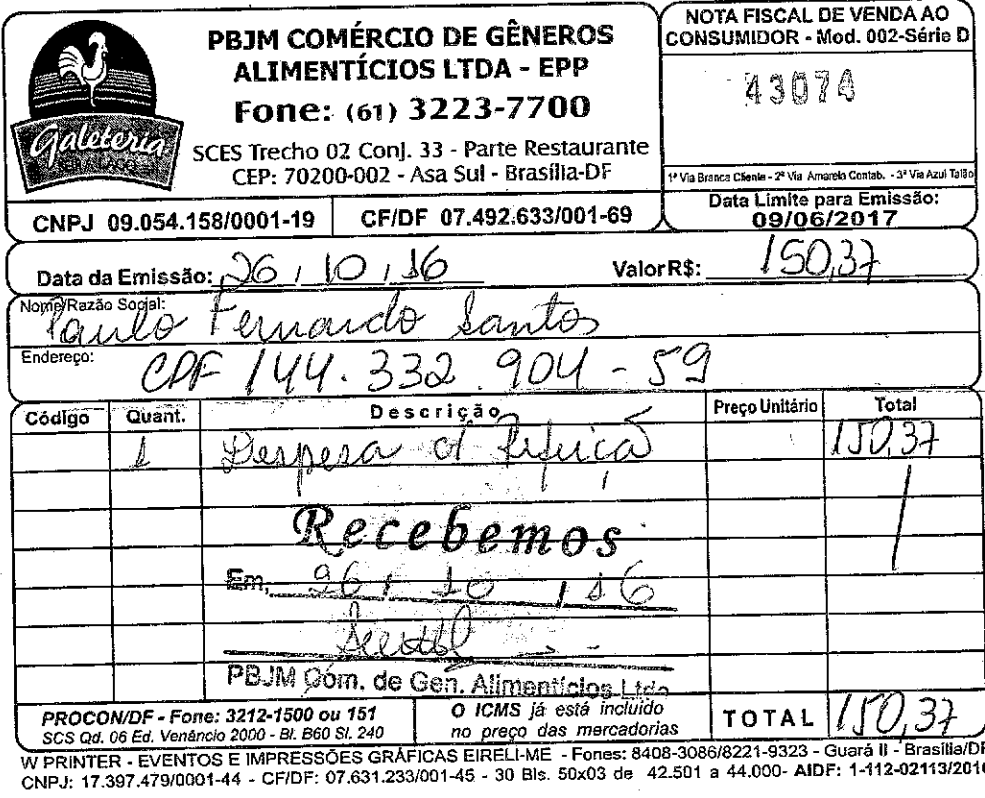 Galeteria
PBJM COMÉRCIO DE GÊNEROS
ALIMENTÍCIOS LTDA - EPP
Fone: (61) 3223-7700
SCES Trecho 02 Conj. 33 - Parte Restaurante
CEP: 70200-002 - Asa Sul - Brasília-DF
CNPJ 09.054.158/0001-19 CF/DF 07.492.633/001-69
NOTA FISCAL DE VENDA AO
CONSUMIDOR - Mod. 002-Série D
43074
1ª Via Branca Cliente - 2ª Via Amarela Contab. - 3ª Via Azul Talão
Data Limite para Emissão:
09/06/2017
Data da Emissão: 26 / 10 / 16 Valor R$: 150,37
Nome/Razão Social:
Paulo Fernando Santos
Endereço: CPF 144.332.904-59
Código Quant. Descrição Preço Unitário Total
1 Despesa c/ Refeição 150,37
Recebemos
Em, 26 / 10 / 16
PBJM Com. de Gen. Alimentícios Ltda
PROCON/DF - Fone: 3212-1500 ou 151
SCS Qd. 06 Ed. Venâncio 2000 - Bl. B60 Sl. 240
O ICMS já está incluido
no preço das mercadorias
TOTAL 150,37
W PRINTER - EVENTOS E IMPRESSÕES GRÁFICAS EIRELI-ME - Fones: 8408-3086/8221-9323 - Guará II - Brasília/DF
CNPJ: 17.397.479/0001-44 - CF/DF: 07.631.233/001-45 - 30 Bls. 50x03 de 42.501 a 44.000- AIDF: 1-112-02113/2016